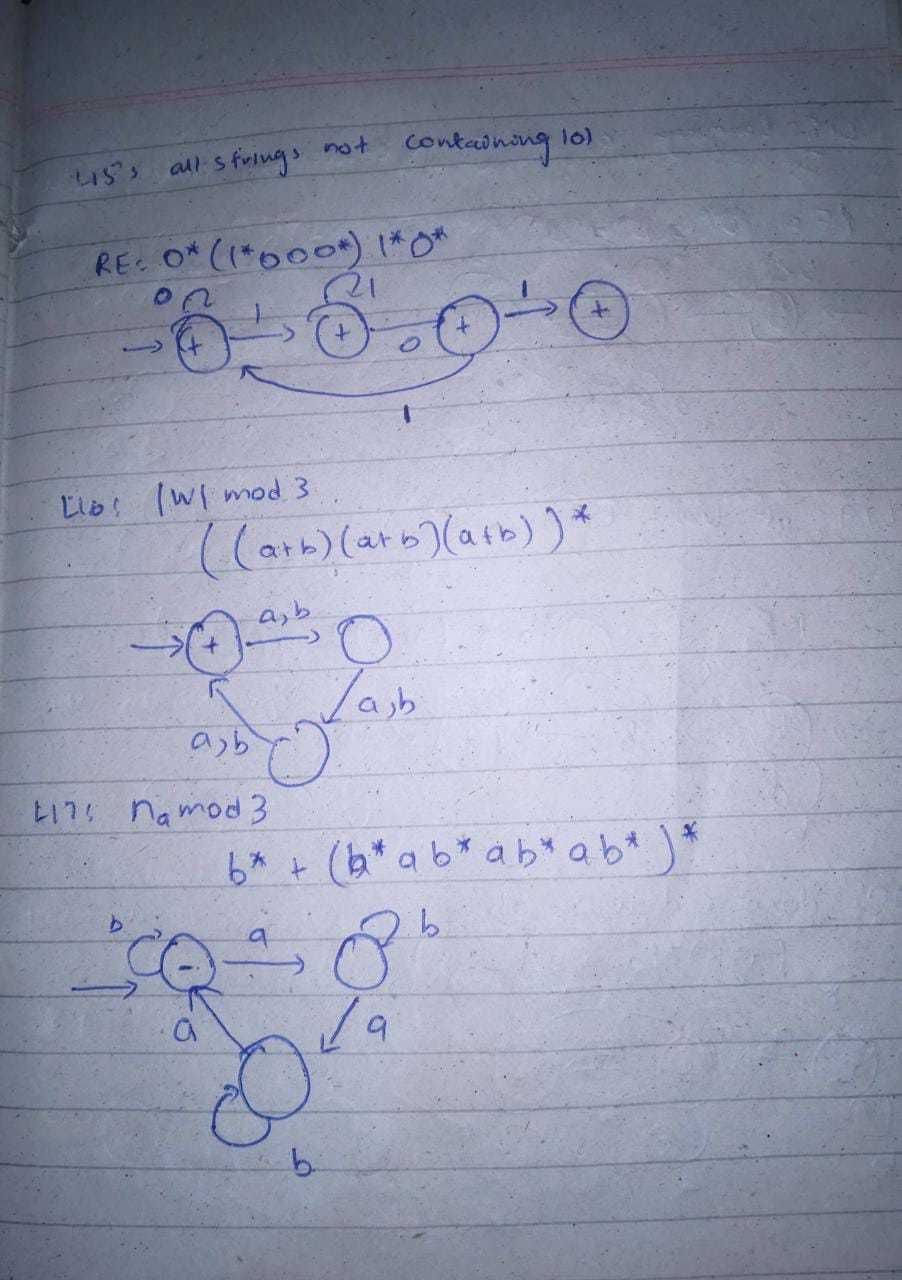 L15: all strings not containing 101
RE: 0* (1*000*) 1*0*
0 1 1 0 1
+ + + +
1
L16: |W| mod 3
( (a+b)(a+b)(a+b) )*
+ a,b
a,b
a,b
L17: na mod 3
b* + (b* a b* a b* a b* )*
b - a b
a a
b